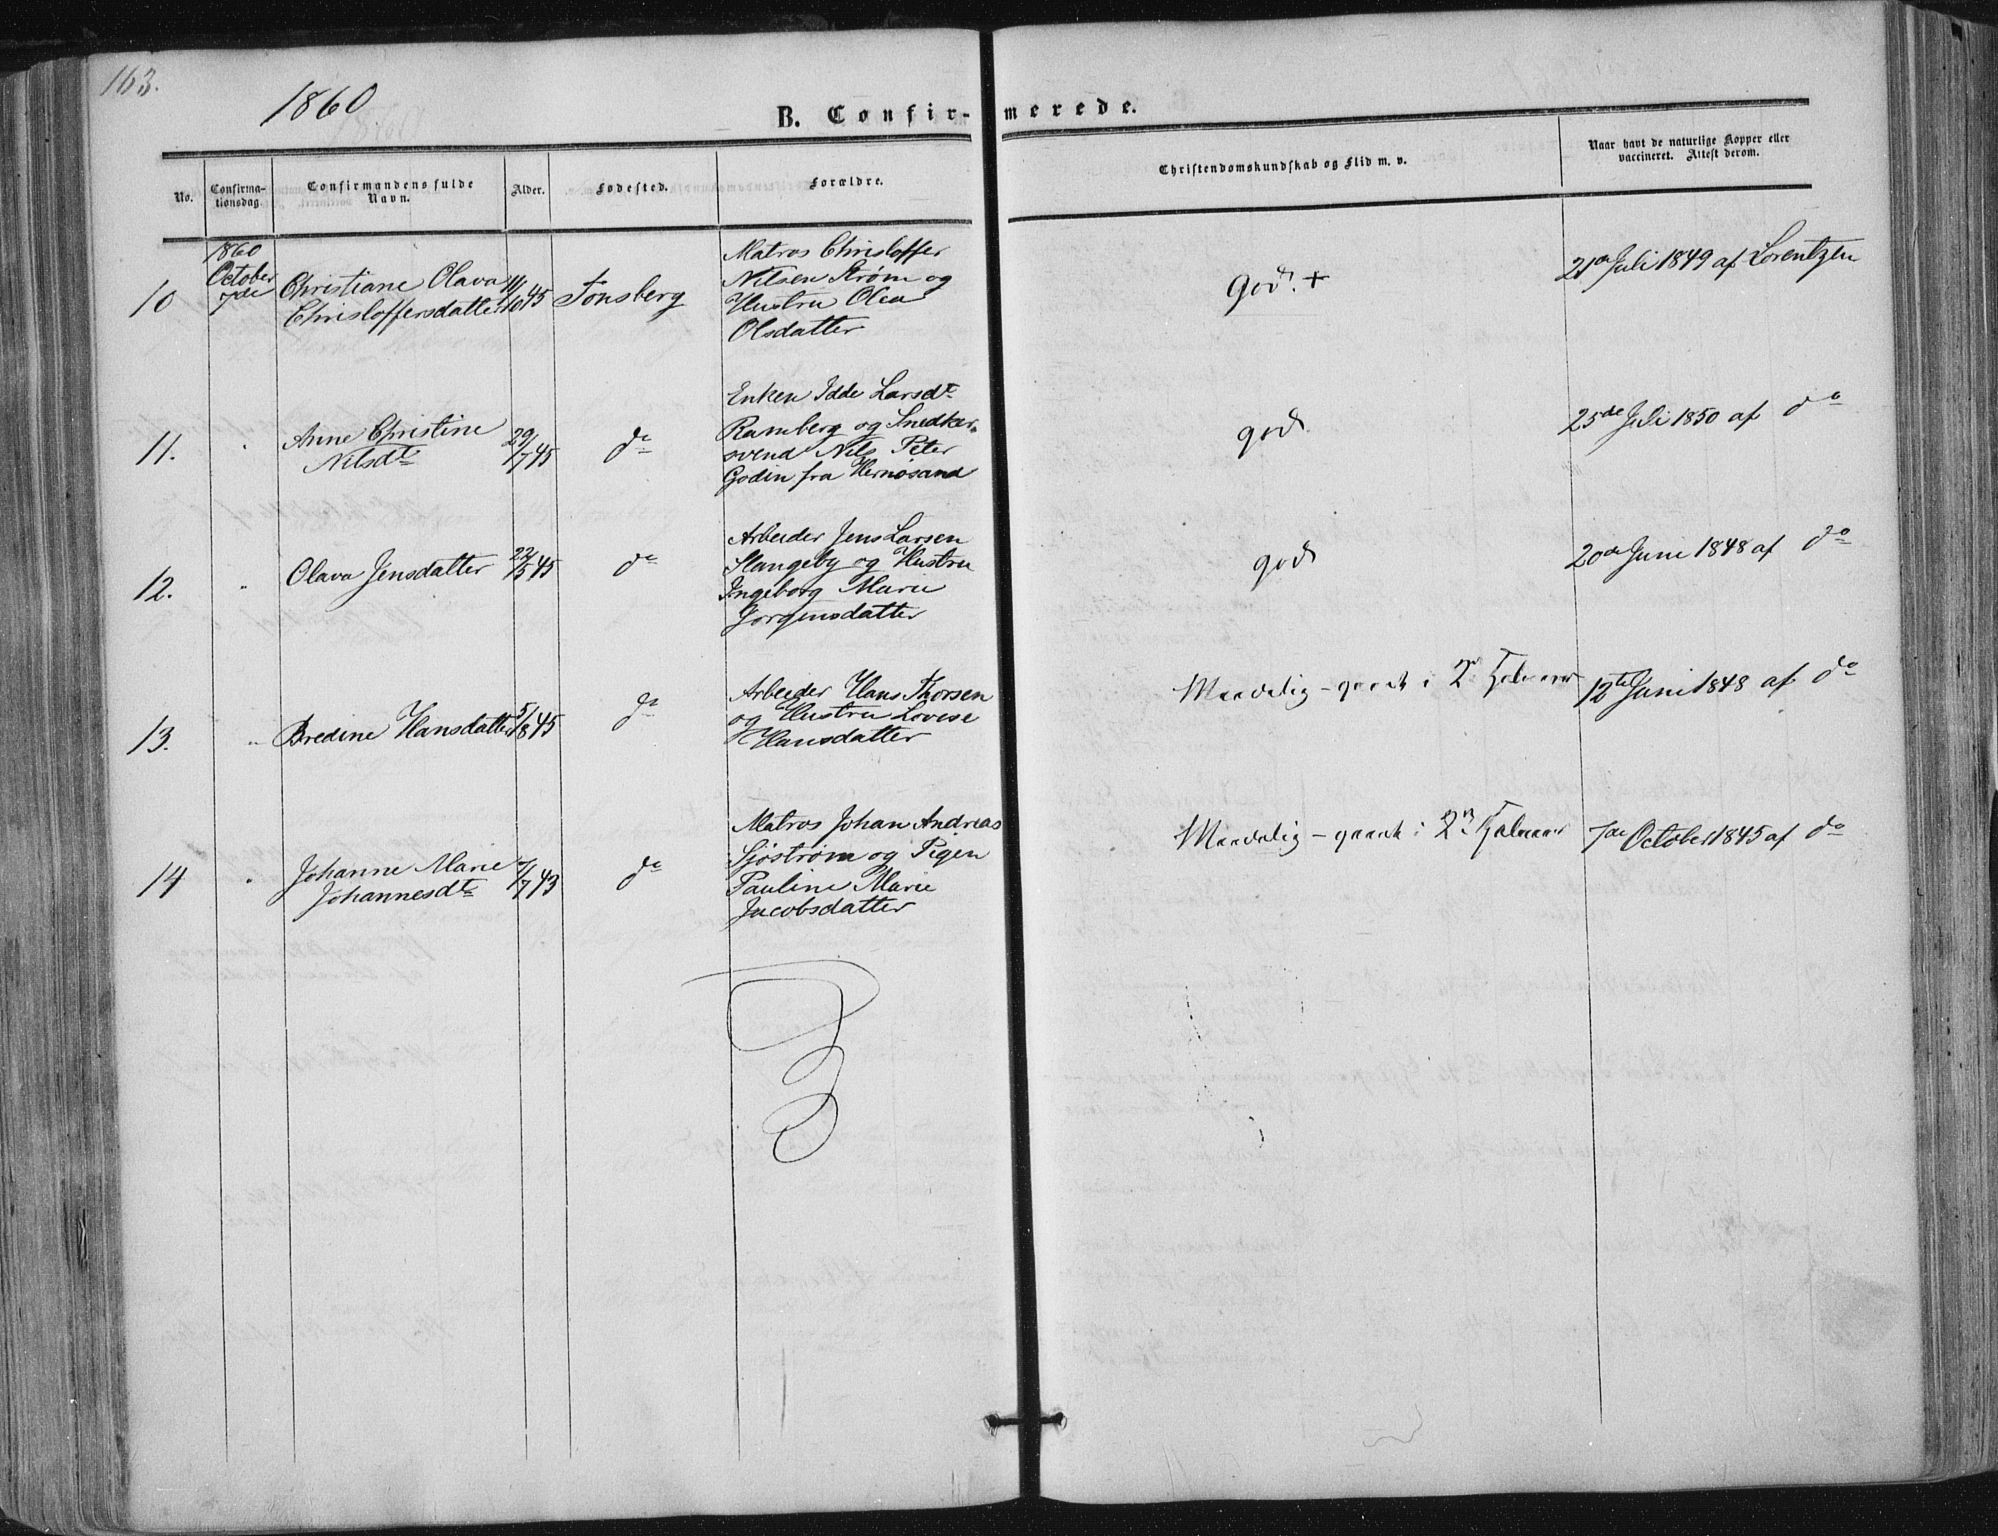 163.
1860
B. Confir- merede.
No.
Confirma-
tionsdag.
Confirmandens fulde
Navn.
Alder.
Fødested.
Forældre.
Christendomskundskab og Flid m. v.
Naar havt de naturlige Kopper eller
vaccineret. Attest derom.
10
1860
October
7de
Christiane Olava
Christoffersdatter
11/10 45
Tønsberg
Matros Christoffer
Nilsen Strøm og
Hustru Olea
Olsdatter
God. +
Juli 1849 af Lorentzen
11.
"
Anne Christine
Nilsdt
29/7 45
do
Enken Idde Larsdt
Ramberg og Snedker-
svend Nils Peter
Godin fra Hernøsand
god
25de Juli 1850 af do
12.
"
Olava Jensdatter
22/5 45
do
Arbeider Jens Larsen
Slangeby og Hustru
Ingeborg Marie
Jørgensdatter
god
20de Juni 1848 af do
13.
"
Bredine Hansdatter
5/8 45
do
Arbeider Hans Thorsen
og Hustru Lovise
Hansdatter
Maadelig - i 2
12te Juni 1848 af do
14
"
Johanne Marie
Johannesdt
7/7 43
do
Matros Johan Andreas
Sjøstrøm og Pigen
Pauline Marie
Jacobsdatter
Maadelig - i 2
7de October 1845 af do